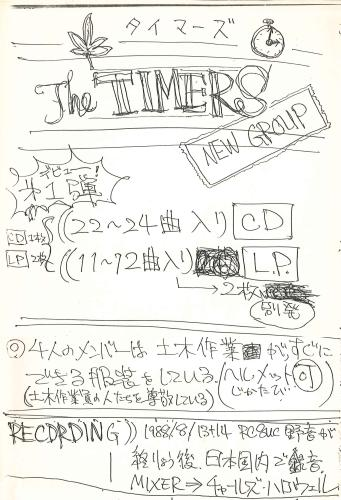 タイマーズ
The TIMERS
NEW GROUP
デビュー!
オ1弾
CD 1枚 ((22〜24曲入り CD
LP 2枚 ((11〜12曲入り L.P.
→2枚
別発
◎4人のメンバーは土木作業がすぐに
できる服装をしている。(ヘルメット
じかたび OK)
(土木作業員の人たちを尊敬している)
RECORDING)) 1988/8/13+14 RC SUC 野音が
終りょう後、日本国内で録音。
MIXER→チャールズ・ハロウェル